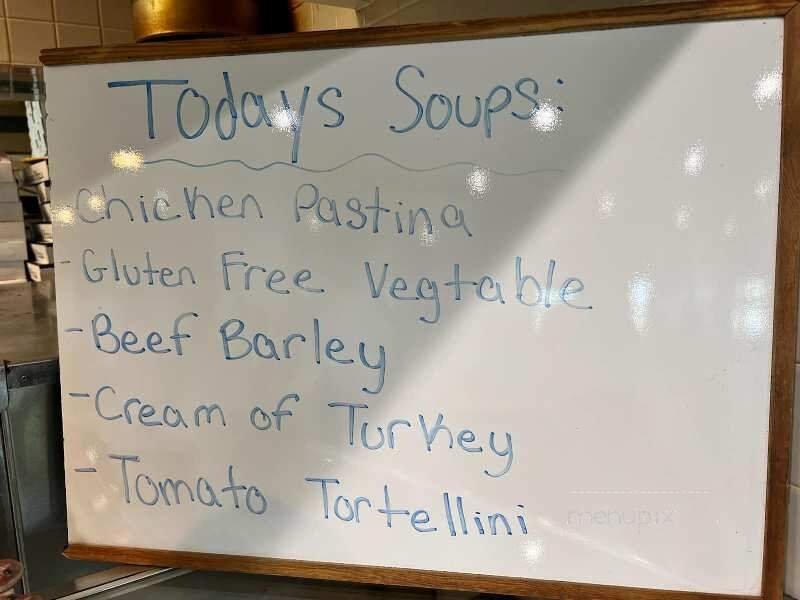 Todays Soups:
Chicken Pastina
- Gluten Free Vegtable
- Beef Barley
- Cream of Turkey
- Tomato Tortellini
menupix